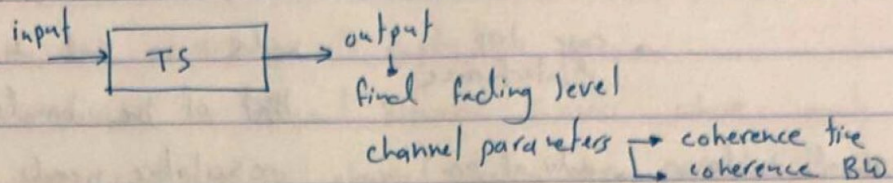 input
TS
output
find fading level
channel parameters
coherence time
coherence BW